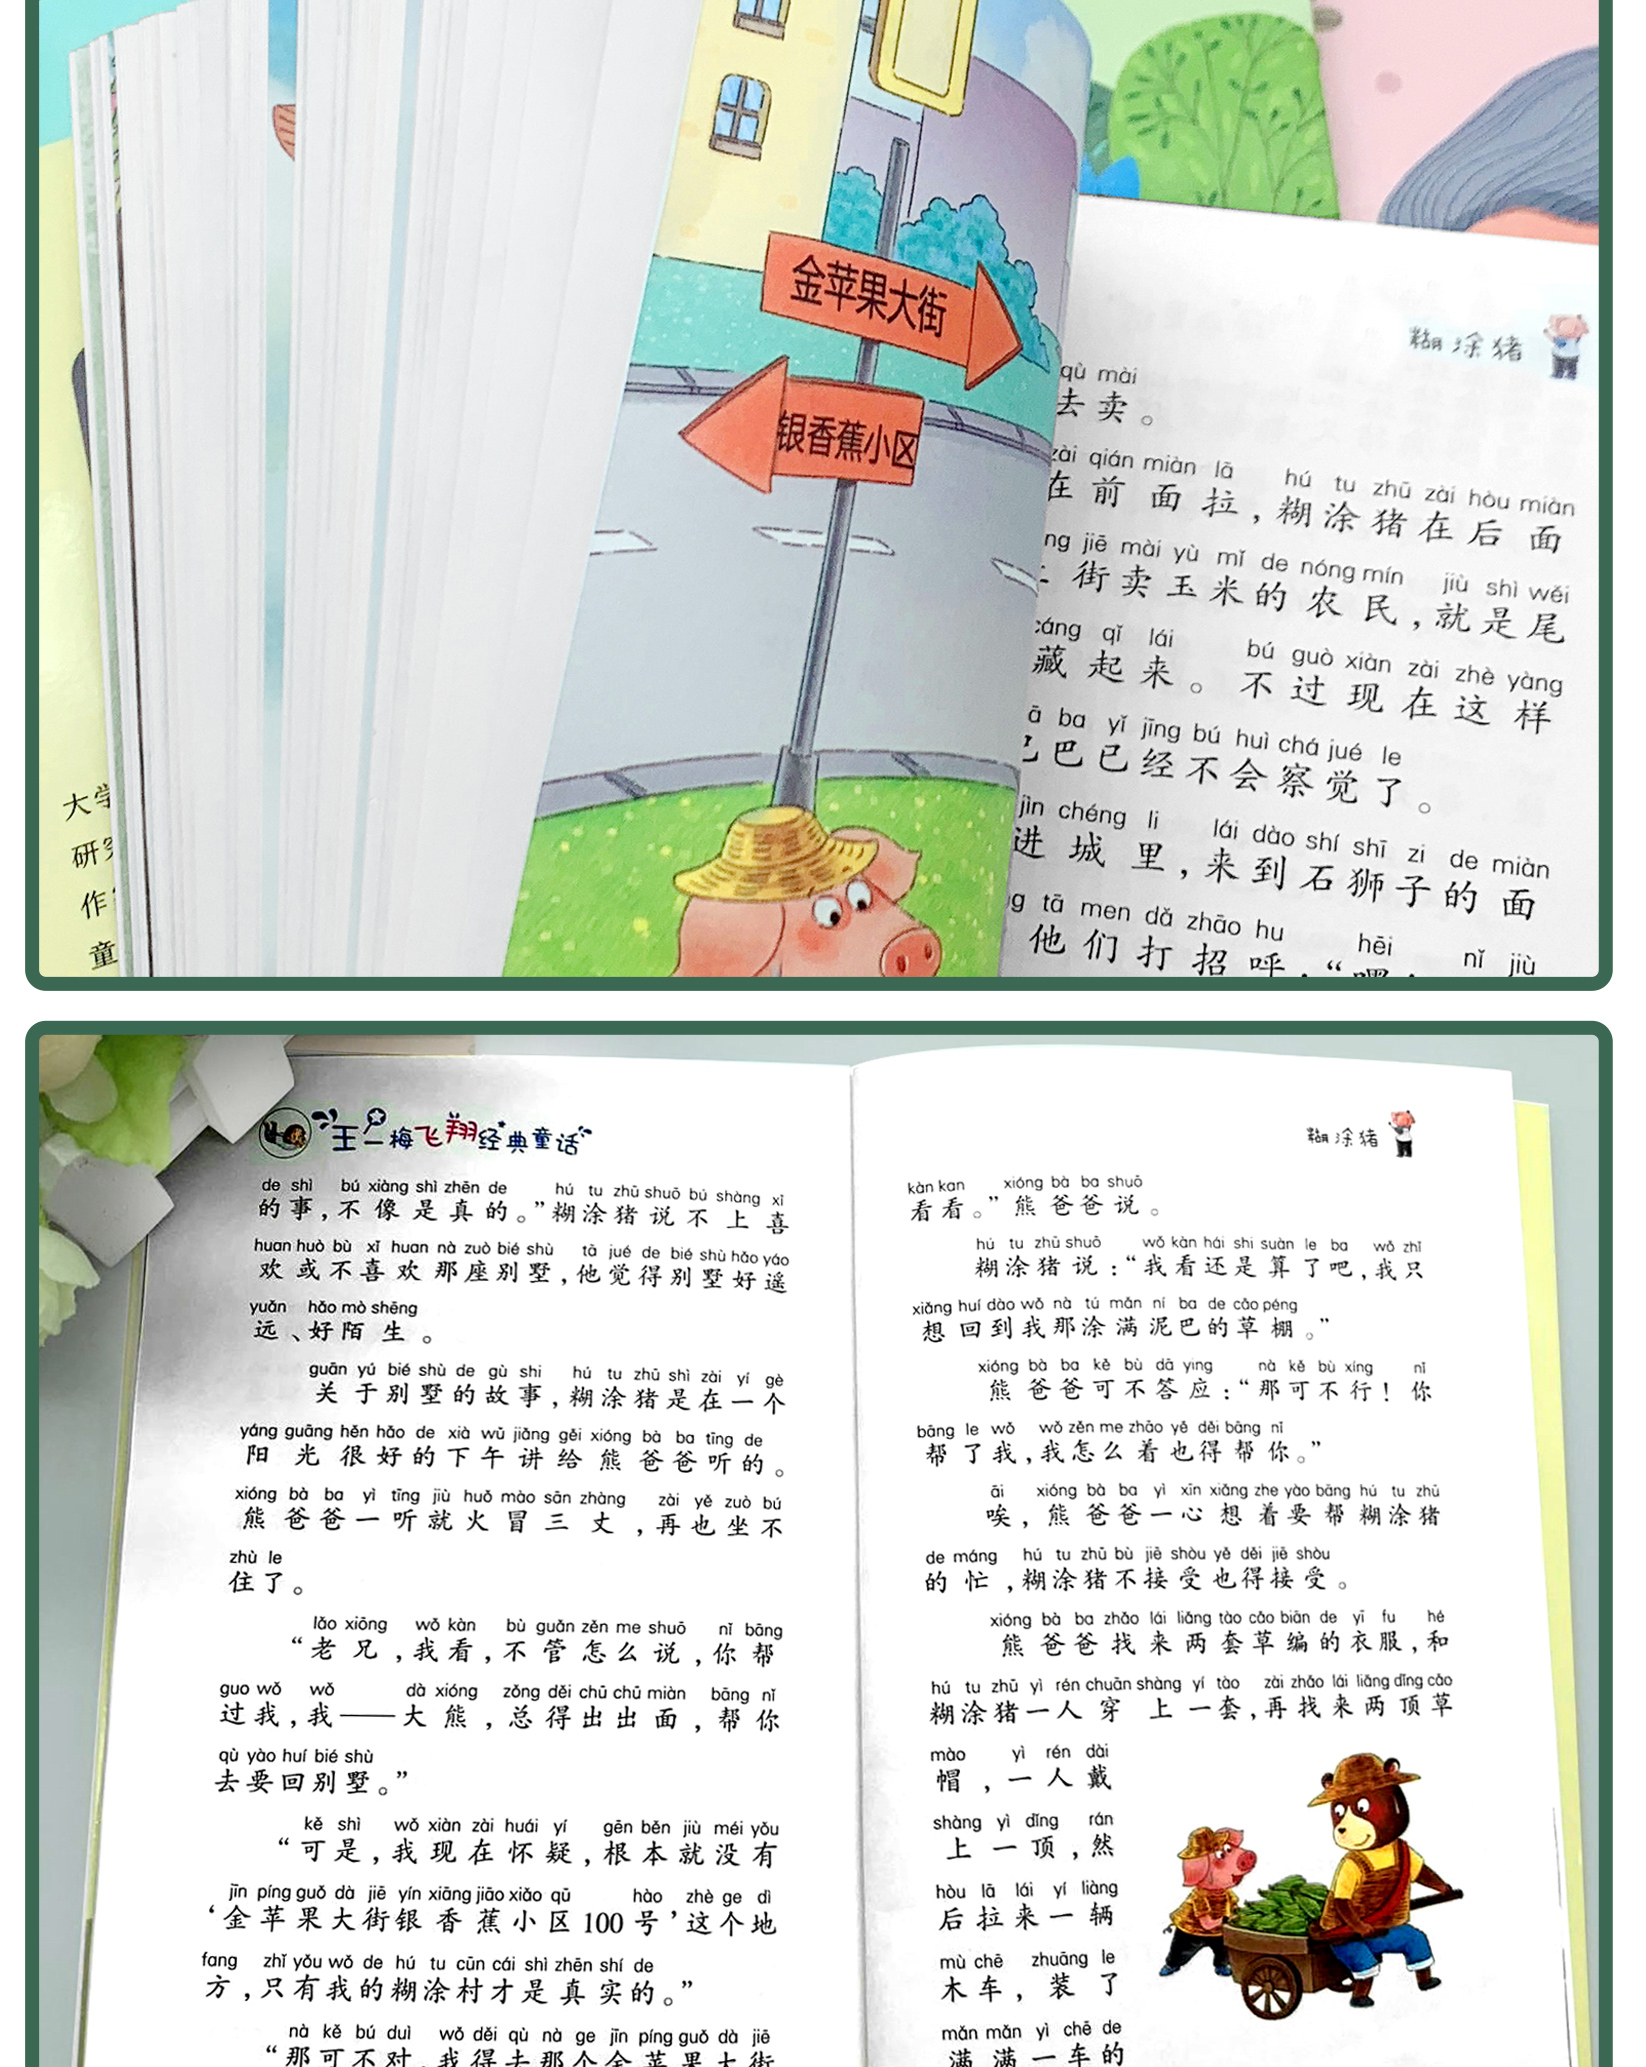 金苹果大街
银香蕉小区
大学
研究
作
童
糊涂猪
qù mài
去卖。
zài qián miàn lā hú tu zhū zài hòu miàn
在前面拉，糊涂猪在后面
jiē mài yù mǐ de nóng mín jiù shì wěi
街卖玉米的农民，就是尾
cáng qǐ lái bú guò xiàn zài zhè yàng
藏起来。不过现在这样
ba yǐ jīng bú huì chá jué le
巴已经不会察觉了。
jìn chéng li lái dào shí shī zi de miàn
进城里，来到石狮子的面
tā men dǎ zhāo hu hēi nǐ jiù
他们打招呼：“嘿，
王一梅飞翔经典童话
de shì bú xiàng shì zhēn de hú tu zhū shuō bú shàng xǐ
的事，不像是真的。”糊涂猪说不上喜
huan huò bù xǐ huan nà zuò bié shù tā jué de bié shù hǎo yáo
欢或不喜欢那座别墅，他觉得别墅好遥
yuǎn hǎo mò shēng
远、好陌生。
guān yú bié shù de gù shi hú tu zhū shì zài yí gè
关于别墅的故事，糊涂猪是在一个
yáng guāng hěn hǎo de xià wǔ jiǎng gěi xióng bà ba tīng de
阳光很好的下午讲给熊爸爸听的。
xióng bà ba yì tīng jiù huǒ mào sān zhàng zài yě zuò bú
熊爸爸一听就火冒三丈，再也坐不
zhù le
住了。
lǎo xiōng wǒ kàn bù guǎn zěn me shuō nǐ bāng
“老兄，我看，不管怎么说，你帮
guo wǒ wǒ dà xióng zǒng děi chū chū miàn bāng nǐ
过我，我——大熊，总得出出面，帮你
qù yào huí bié shù
去要回别墅。”
kě shì wǒ xiàn zài huái yí gēn běn jiù méi yǒu
“可是，我现在怀疑，根本就没有
jīn píng guǒ dà jiē yín xiāng jiāo xiǎo qū hào zhè ge dì
‘金苹果大街银香蕉小区100号’这个地
fang zhǐ yǒu wǒ de hú tu cūn cái shì zhēn shí de
方，只有我的糊涂村才是真实的。”
nà kě bú duì wǒ děi qù nà ge jīn píng guǒ dà jiē
“那可不对，我得去那个金苹果大街
糊涂猪
kàn kan xióng bà ba shuō
看看。”熊爸爸说。
hú tu zhū shuō wǒ kàn hái shi suàn le ba wǒ zhǐ
糊涂猪说：“我看还是算了吧，我只
xiǎng huí dào wǒ nà tú mǎn ní ba de cǎo péng
想回到我那涂满泥巴的草棚。”
xióng bà ba kě bù dā ying nà kě bù xíng nǐ
熊爸爸可不答应：“那可不行！你
bāng le wǒ wǒ zěn me zhāo yě děi bāng nǐ
帮了我，我怎么着也得帮你。”
āi xióng bà ba yì xīn xiǎng zhe yào bāng hú tu zhū
唉，熊爸爸一心想着要帮糊涂猪
de máng hú tu zhū bù jiē shòu yě děi jiē shòu
的忙，糊涂猪不接受也得接受。
xióng bà ba zhǎo lái liǎng tào cǎo biān de yī fu hé
熊爸爸找来两套草编的衣服，和
hú tu zhū yì rén chuān shàng yí tào zài zhǎo lái liǎng dǐng cǎo
糊涂猪一人穿上一套，再找来两顶草
mào yì rén dài
帽，一人戴
shàng yì dǐng rán
上一顶，然
hòu lā lái yí liàng
后拉来一辆
mù chē zhuāng le
木车，装了
mǎn mǎn yì chē de
满满一车的